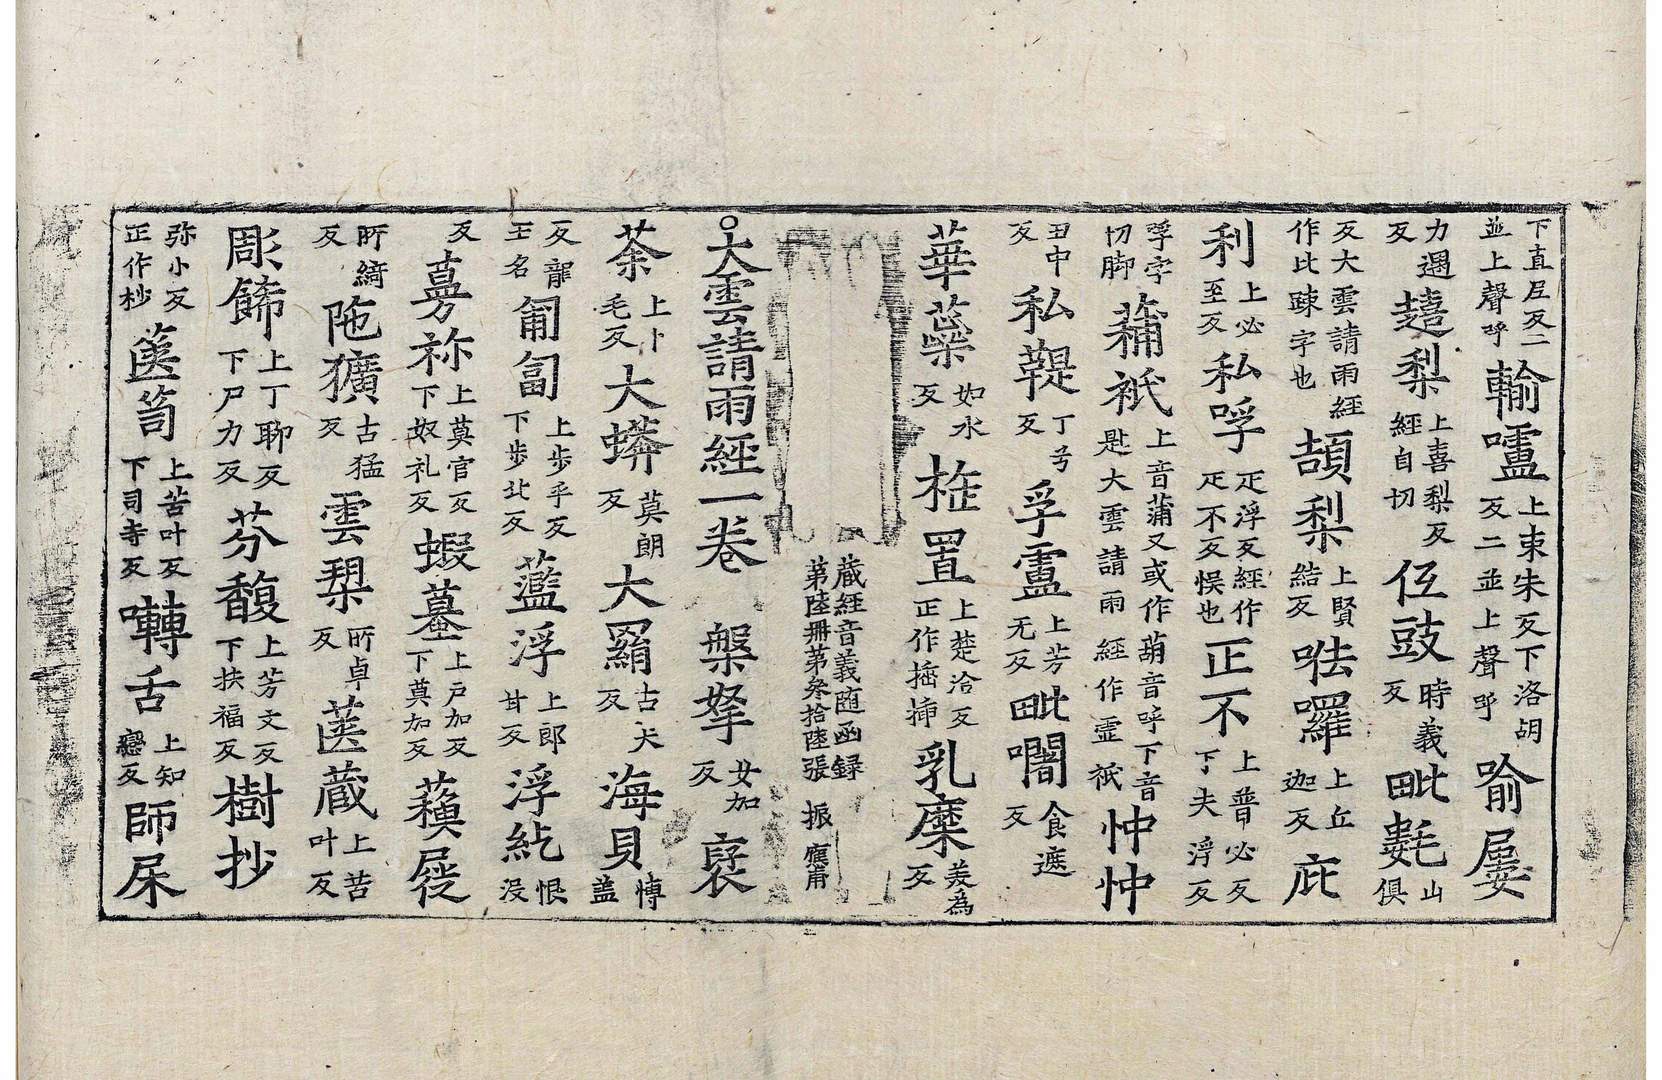 下直尼反一並上聲呼輸嚧上束朱反下洛胡反二並上聲呼喻屢
力遇反𧽊梨上喜梨反經自切伍豉時義反毗𣯫山俱
反大雲請雨經作比踈字也頡梨上賢結反呿羅上丘迦反庇
利上必至反私呼疋浮反經作疋不反悮也正不上普必反下夫浮反
呼字切脚䔕祇上音蒲又或作葫音呼下音匙大雲請雨經作䖍祇忡忡
丑中反私鞮丁兮反孚盧上芳无反毗闍食遮反
華蘂如水反㭼置上楚洽反正作插揷乳糜美為反
藏經音義随函録第陸冊第叅拾陸張 振 應甫
○大雲請雨經一卷 槃拏女加反裒
荼上卜毛反大蟒莫朗反大羂古犬反海貝慱盖
反龍王名匍匐上步乎反下步北反藍浮上郎甘反浮紇恨沒
反蒡祢上莫官反下奴礼反蝦蟇上戸加反下莫加反䕸屣
所綺反陁獷古猛反雲槊所卓反篋蔵上苦叶反
彫餙上丁聊反下尸力反芬馥上芳文反下扶福反樹抄
弥小反正作杪篋笥上苦叶反下司寺反囀舌上知戀反師㡳